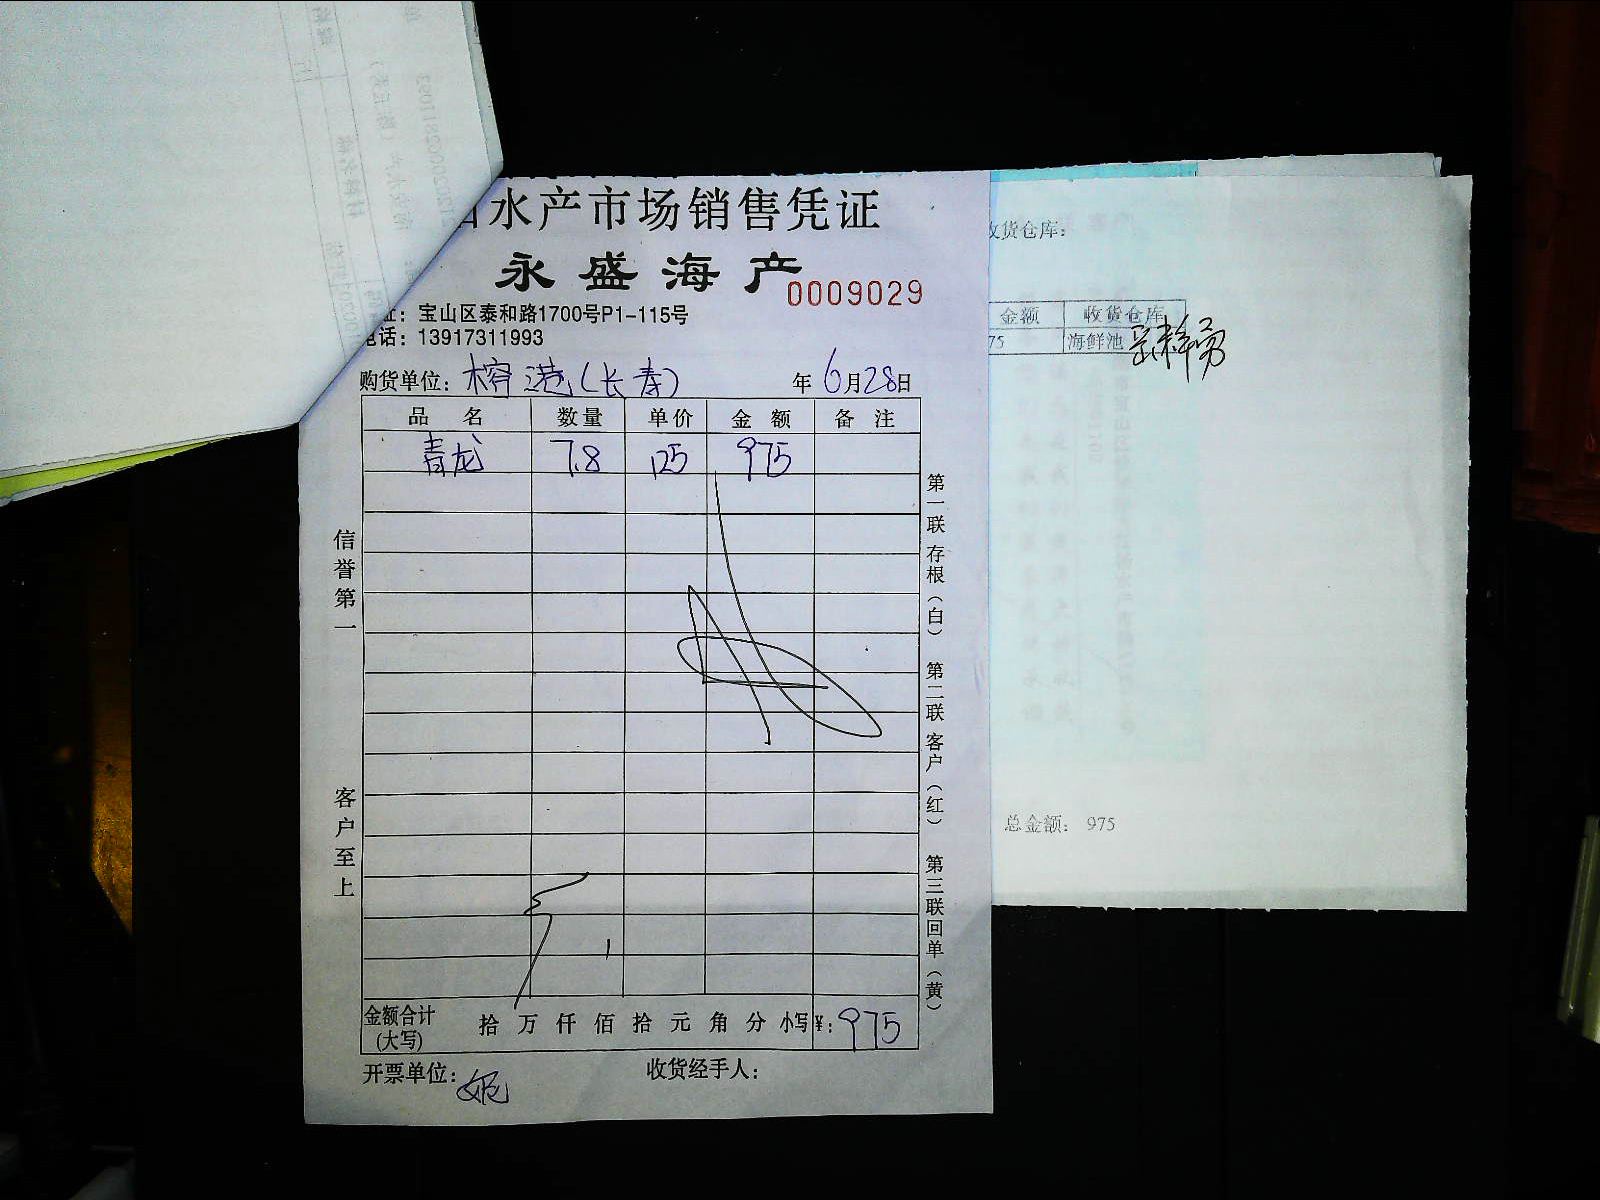 水产市场销售凭证
永盛海产
0009029
址：宝山区泰和路1700号P1-115号
电话：13917311993
购货单位：榕港(长寿) 年6月28日
品名 数量 单价 金额 备注
青龙 7.8 125 975
信誉第一
客户至上
第一联存根(白) 第二联客户(红) 第三联回单(黄)
金额合计(大写) 拾万仟佰拾元角分 小写¥：975
开票单位： 收货经手人：
收货仓库：
金额 收货仓库
75 海鲜池
总金额： 975